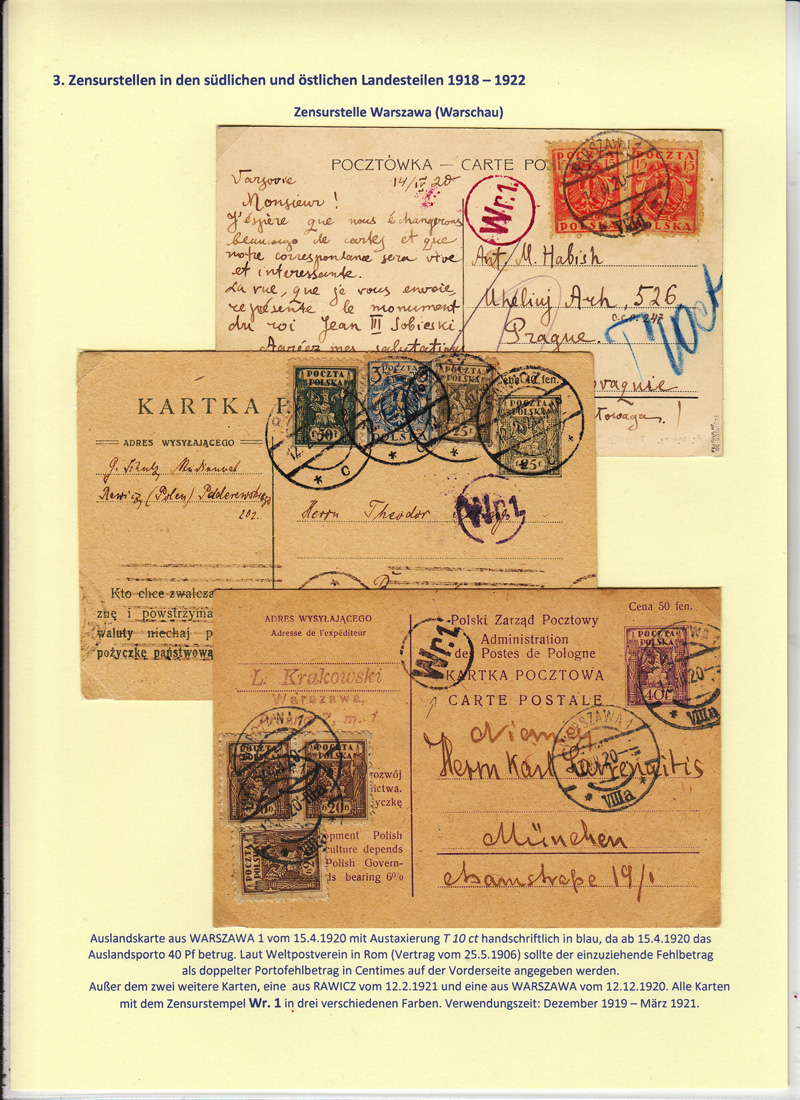 3. Zensurstellen in den südlichen und östlichen Landesteilen 1918 – 1922
Zensurstelle Warszawa (Warschau)
POCZTÓWKA — CARTE PO
Varsovie 14/IV 20
Monsieur!
J'éspère que nous échangerons
beaucoup de cartes et que
notre correspondance sera vive
et interessante.
La vue, que je vous envoie,
représente le monument
du roi Jean III Sobieski.
Agréez mes salutations
Wr.1
15 POCZTA 15
15 POCZTA 15
POLSKA
POLSKA
Ant. M. Habish
526
Prague.
T 10 ct
KARTKA P
ADRES WYSYŁAJĄCEGO
Rawicz (Polen)
202.
POCZTA POLSKA 50 f
3 POCZTA
POLSKA
POCZTA POLSKA 25 f
Cena 40 fen.
POCZTA POLSKA 25 f
12.2
Herrn Theodor
Wr.1
Kto chce zwalcza
znę i powstrzyma
waluty niechaj p
pożyczkę państwową
ADRES WYSYŁAJĄCEGO
Adresse de l'expéditeur
L. Krakowski
Warszawa,
7, m. 1
Wr.1
Polski Zarząd Pocztowy
Administration
des Postes de Pologne
KARTKA POCZTOWA
CARTE POSTALE
Cena 50 fen.
POCZTA POLSKA 40 f
WARSZAWA 1
VIII a
Niemcy
Herrn Karl
München
19/I
POCZTA POLSKA
POCZTA POLSKA 20 f
POCZTA POLSKA
rozwój
nictwa.
życzkę
opment Polish
culture depends
Polish Govern-
ds bearing 6%
Auslandskarte aus WARSZAWA 1 vom 15.4.1920 mit Austaxierung T 10 ct handschriftlich in blau, da ab 15.4.1920 das
Auslandsporto 40 Pf betrug. Laut Weltpostverein in Rom (Vertrag vom 25.5.1906) sollte der einzuziehende Fehlbetrag
als doppelter Portofehlbetrag in Centimes auf der Vorderseite angegeben werden.
Außer dem zwei weitere Karten, eine aus RAWICZ vom 12.2.1921 und eine aus WARSZAWA vom 12.12.1920. Alle Karten
mit dem Zensurstempel Wr. 1 in drei verschiedenen Farben. Verwendungszeit: Dezember 1919 – März 1921.